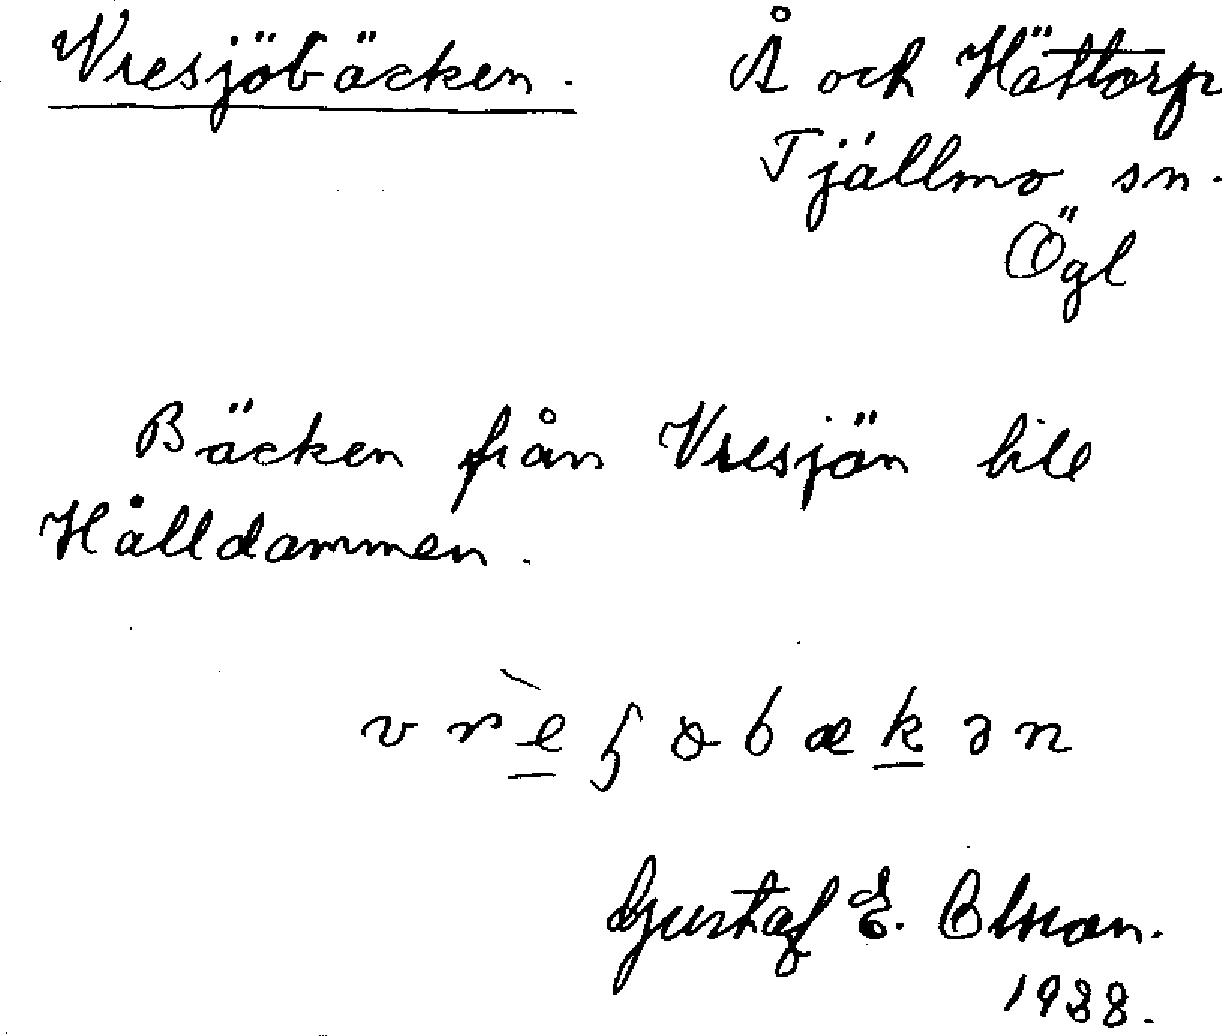 Vresjöbäcken. Å och Hättorp
Tjällmo sn.
Ögl
Bäcken från Vresjön till
Hålldammen.
Gustaf E. Olson.